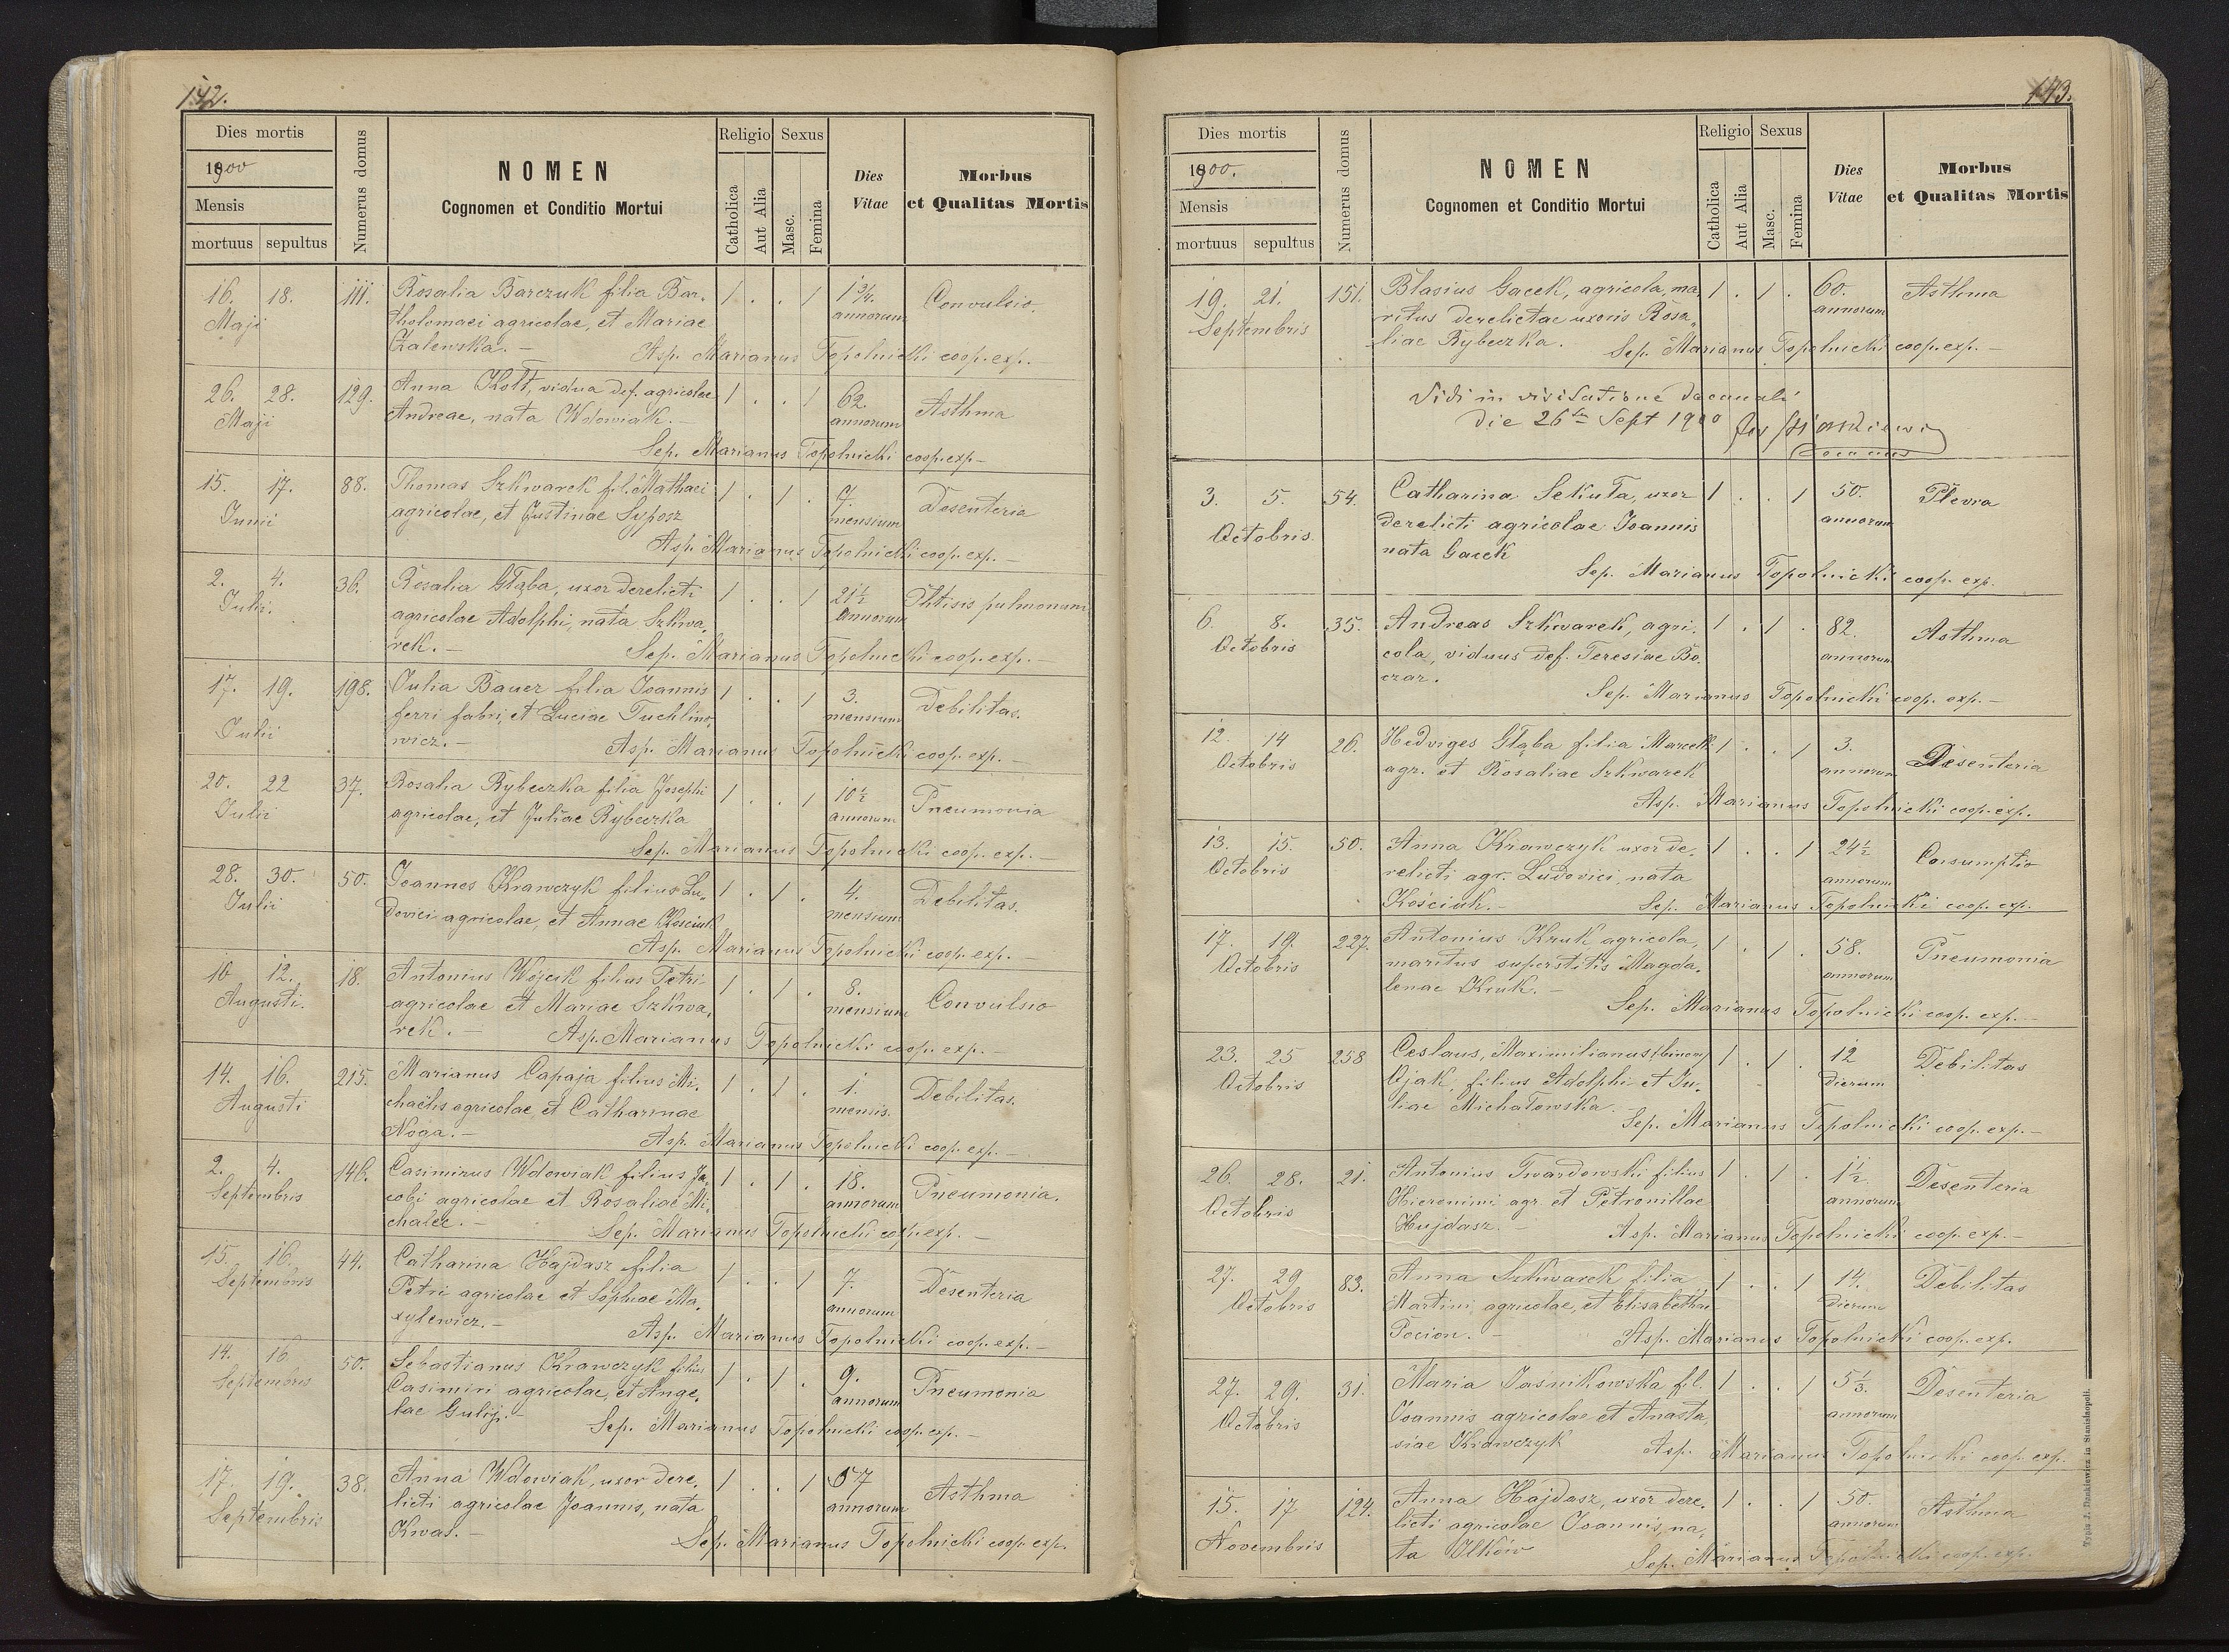 142.
Dies mortis
1900
Mensis
mortuus sepultus
Numerus domus
NOMEN
Cognomen et Conditio Mortui
Religio
Catholica
Aut Alia
Sexus
Masc.
Femina
Dies
Vitae
Morbus
et Qualitas Mortis
16. 18. 111. Rosalia Barczuk filia Bar- 1 . . 1 1 3/4. Convulsio.
Maji tholomaei agricolae, et Mariae annorum
Zalewska. — Asp. Marianus Topolnicki coop. exp. —
26. 28. 129. Anna Kott, vidua def. agricolae 1 . . 1 62. Asthma
Maji Andreae, nata Wdowiak. — annorum
Sep. Marianus Topolnicki coop. exp —
15. 17. 88. Thomas Szkwarek fil. Mathaei 1 . 1 . 7. Desenteria
Junii agricolae, et Justinae Syposz mensium
Asp. Marianus Topolnicki coop. exp. —
2. 4. 36. Rosalia Głąba, uxor derelicti 1 . . 1 21 1/2 Phtisis pulmonum
Julii. agricolae Adolphi, nata Szkwa- annorum
rek. — Sep. Marianus Topolnicki coop. exp. —
17. 19. 198. Julia Bauer filia Joannis 1 . . 1 3. Debilitas.
Julii ferri fabri, et Luciae Tuchlino- mensium
wicz. — Asp. Marianus Topolnicki coop. exp. —
20. 22 37. Rosalia Rybeczka filia Josephi 1 . . 1 10 1/2 Pneumonia
Julii agricolae, et Juliae Rybeczka annorum
Sep. Marianus Topolnicki coop. exp. —
28. 30. 50. Joannes Krawczyk filius Lu- 1 . 1 . 4. Debilitas.
Julii dovici agricolae, et Annae Kościuk mensium
Asp. Marianus Topolnicki coop. exp. —
10 12. 18. Antonius Wójcik filius Petri 1 . 1 . 8. Convulsio
Augusti. agricolae et Mariae Szkwa- mensium
rek. — Asp. Marianus Topolnicki coop. exp. —
14. 16. 215. Marianus Capaja filius Mi- 1 . 1 . 1. Debilitas.
Augusti chaelis agricolae, et Catharinae mensis.
Noga. — Asp. Marianus Topolnicki coop. exp. —
2. 4. 146. Casimirus Wdowiak filius Ja- 1 . 1 . 18. Pneumonia.
Septembris cobi agricolae et Rosaliae Mi- annorum
chalec. — Sep. Marianus Topolnicki coop. exp. —
15. 16. 44. Catharina Hajdasz filia 1 . . 1 7. Desenteria
Septembris Petri agricolae et Sophiae Ma- annorum
xylewicz. — Asp. Marianus Topolnicki coop. exp. —
14. 16 50. Sebastianus Krawczyk filius 1 . 1 . 9. Pneumonia
Septembris Casimiri agricolae, et Ange- annorum
lae Gulij. — Sep. Marianus Topolnicki coop. exp. —
17. 19. 38. Anna Wdowiak, uxor dere- 1 . . 1 57 Asthma
Septembris licti agricolae Joannis, nata annorum
Kwas. — Sep. Marianus Topolnicki coop. exp.
143.
Dies mortis
1900.
Mensis
mortuus sepultus
Numerus domus
NOMEN
Cognomen et Conditio Mortui
Religio
Catholica
Aut Alia
Sexus
Masc.
Femina
Dies
Vitae
Morbus
et Qualitas Mortis
19. 21. 151. Blasius Gacek, agricola, ma- 1 . 1 . 60. Asthma
Septembris ritus derelictae uxoris Rosa- annorum
liae Rybeczka. Sep. Marianus Topolnicki coop. exp. —
Vidi in visitatione decanali
die 26 Sept 1900
3. 5. 54. Catharina Sekuła, uxor 1 . . 1 50. Plevra
Octobris. derelicti agricolae Joannis annorum
nata Gacek
Sep. Marianus Topolnicki coop. exp.
6. 8. 35. Andreas Szkwarek, agri- 1 . 1 . 82. Asthma
Octobris cola, viduus def. Teresiae Bo- annorum
czar. Sep. Marianus Topolnicki coop. exp. —
12. 14 26. Hedviges Głąba filia Marcelli 1 . . 1 3. Desenteria
Octobris agr. et Rosaliae Szkwarek annorum
Asp. Marianus Topolnicki coop. exp.
13. 15. 50. Anna Krawczyk uxor de- 1 . . 1 24 1/2 Consumptio
Octobris relicti agr. Ludovici, nata annorum
Kościuk. — Sep. Marianus Topolnicki coop. exp.
17. 19. 227. Antonius Kruk agricola, 1 . 1 . 58. Pneumonia
Octobris maritus superstitis Magda- annorum
lenae Kruk. — Sep. Marianus Topolnicki coop. exp. —
23. 25 258 Ceslaus, Maximilianus (binom) 1 . 1 . 12 Debilitas
Octobris Ojak, filius Adolphi et Ju- dierum
liae Michałowska. Sep. Marianus Topolnicki coop. exp. —
26. 28. 21. Antonius Twardowski filius 1 . 1 . 1 1/2. Desenteria
Octobris Hieronimi agr. et Petronillae annorum
Hujdasz. Asp. Marianus Topolnicki coop. exp. —
27. 29 83. Anna Szkwarek filia 1 . . 1 14. Debilitas
Octobris Martini, agricolae, et Elisabethae dierum
Pocion. — Asp. Marianus Topolnicki coop. exp.
27. 29. 31. Maria Jasnikowska fil. 1 . . 1 5 1/3. Desenteria
Octobris Joannis agricolae et Anasta- annorum
siae Krawczyk Asp. Marianus Topolnicki coop. exp.
15. 17 124. Anna Hajdasz, uxor dere- 1 . . 1 50. Asthma
Novembris licti agricolae Joannis, na- annorum
ta Ilków Sep. Marianus Topolnicki coop. exp.
Typis J. Dankiewicz in Stanislaopoli.